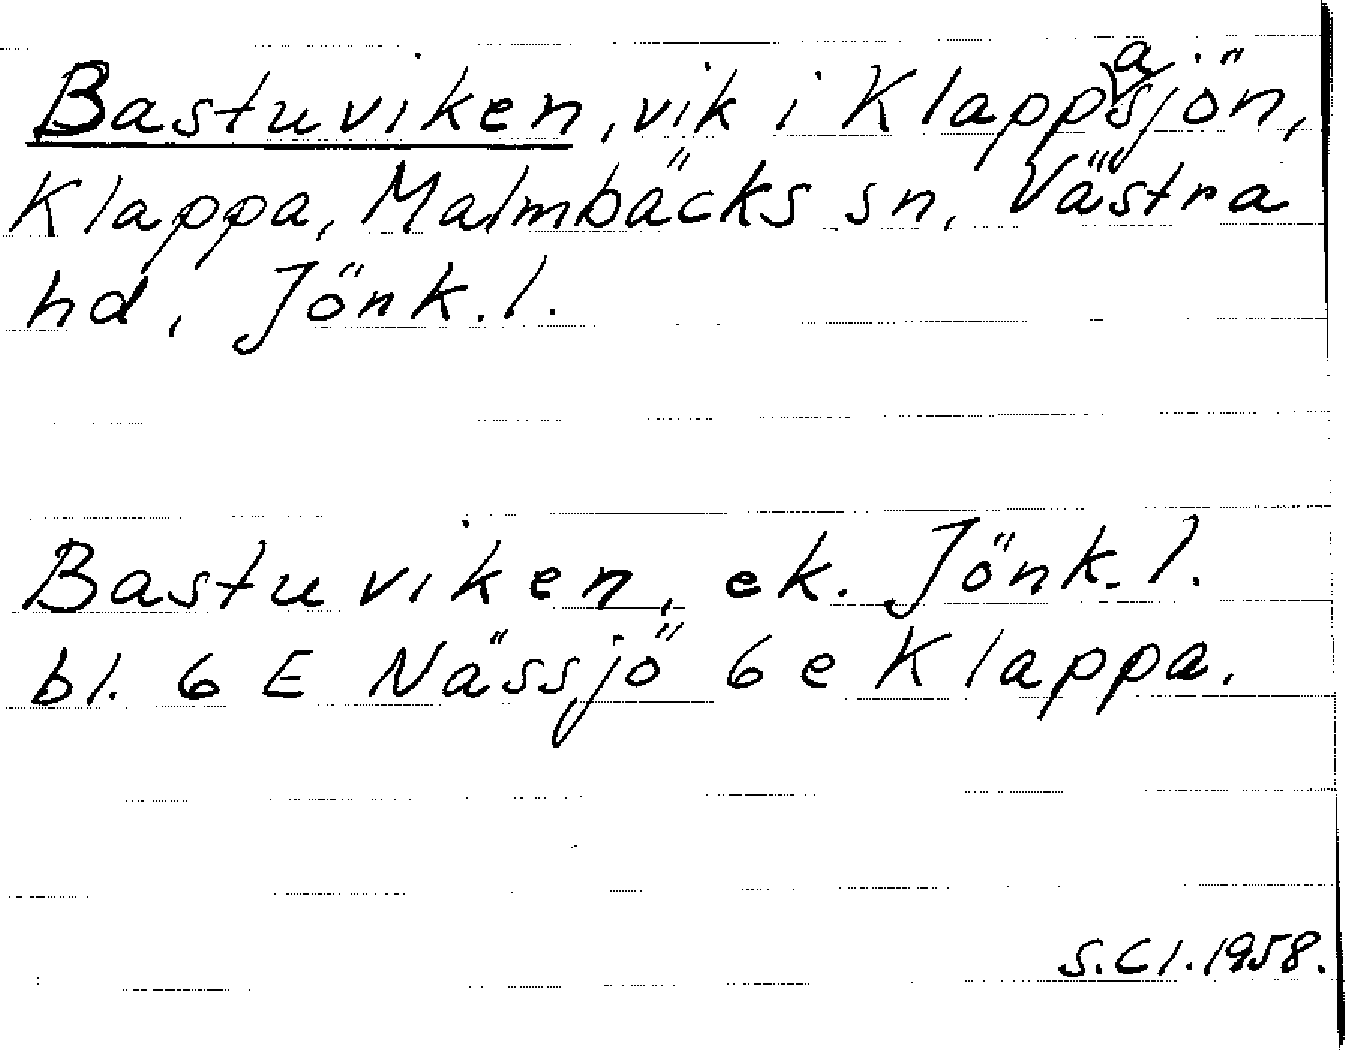 Bastuviken, vik i Klappasjön,
Klappa, Malmbäcks sn, Västra
hd, Jönk.l.
Bastuviken, ek. Jönk.l.
bl. 6 E Nässjö 6 e Klappa.
S.Cl.1958.